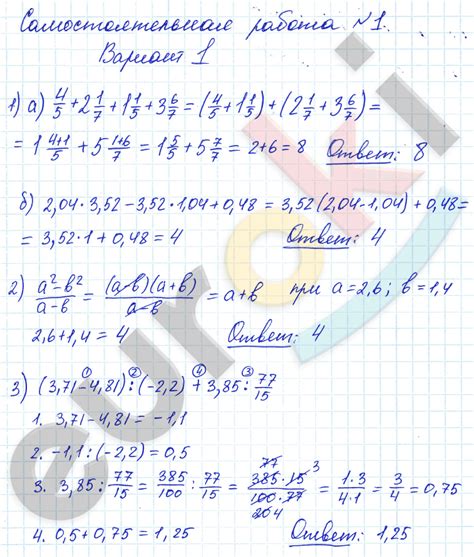 Самостоятельная работа №1.
Вариант 1
1) а) 4/5 + 2 1/7 + 1 1/5 + 3 6/7 = (4/5 + 1 1/5) + (2 1/7 + 3 6/7) =
= 1 4+1/5 + 5 1+6/7 = 1 5/5 + 5 7/7 = 2+6 = 8 Ответ: 8
б) 2,04 · 3,52 - 3,52 · 1,04 + 0,48 = 3,52 (2,04 - 1,04) + 0,48 =
= 3,52 · 1 + 0,48 = 4 Ответ: 4
2) a²-b²/a-b = (a-b)(a+b)/a-b = a+b при a=2,6; b=1,4
2,6+1,4 = 4 Ответ: 4
① ② ④ ③
3) (3,71-4,81) : (-2,2) + 3,85 : 77/15
1. 3,71-4,81 = -1,1
2. -1,1 : (-2,2) = 0,5
3. 3,85 : 77/15 = 385/100 : 77/15 = 385·15/100·77 = 1·3/4·1 = 3/4 = 0,75
4. 0,5+0,75 = 1,25 Ответ: 1,25
euroki